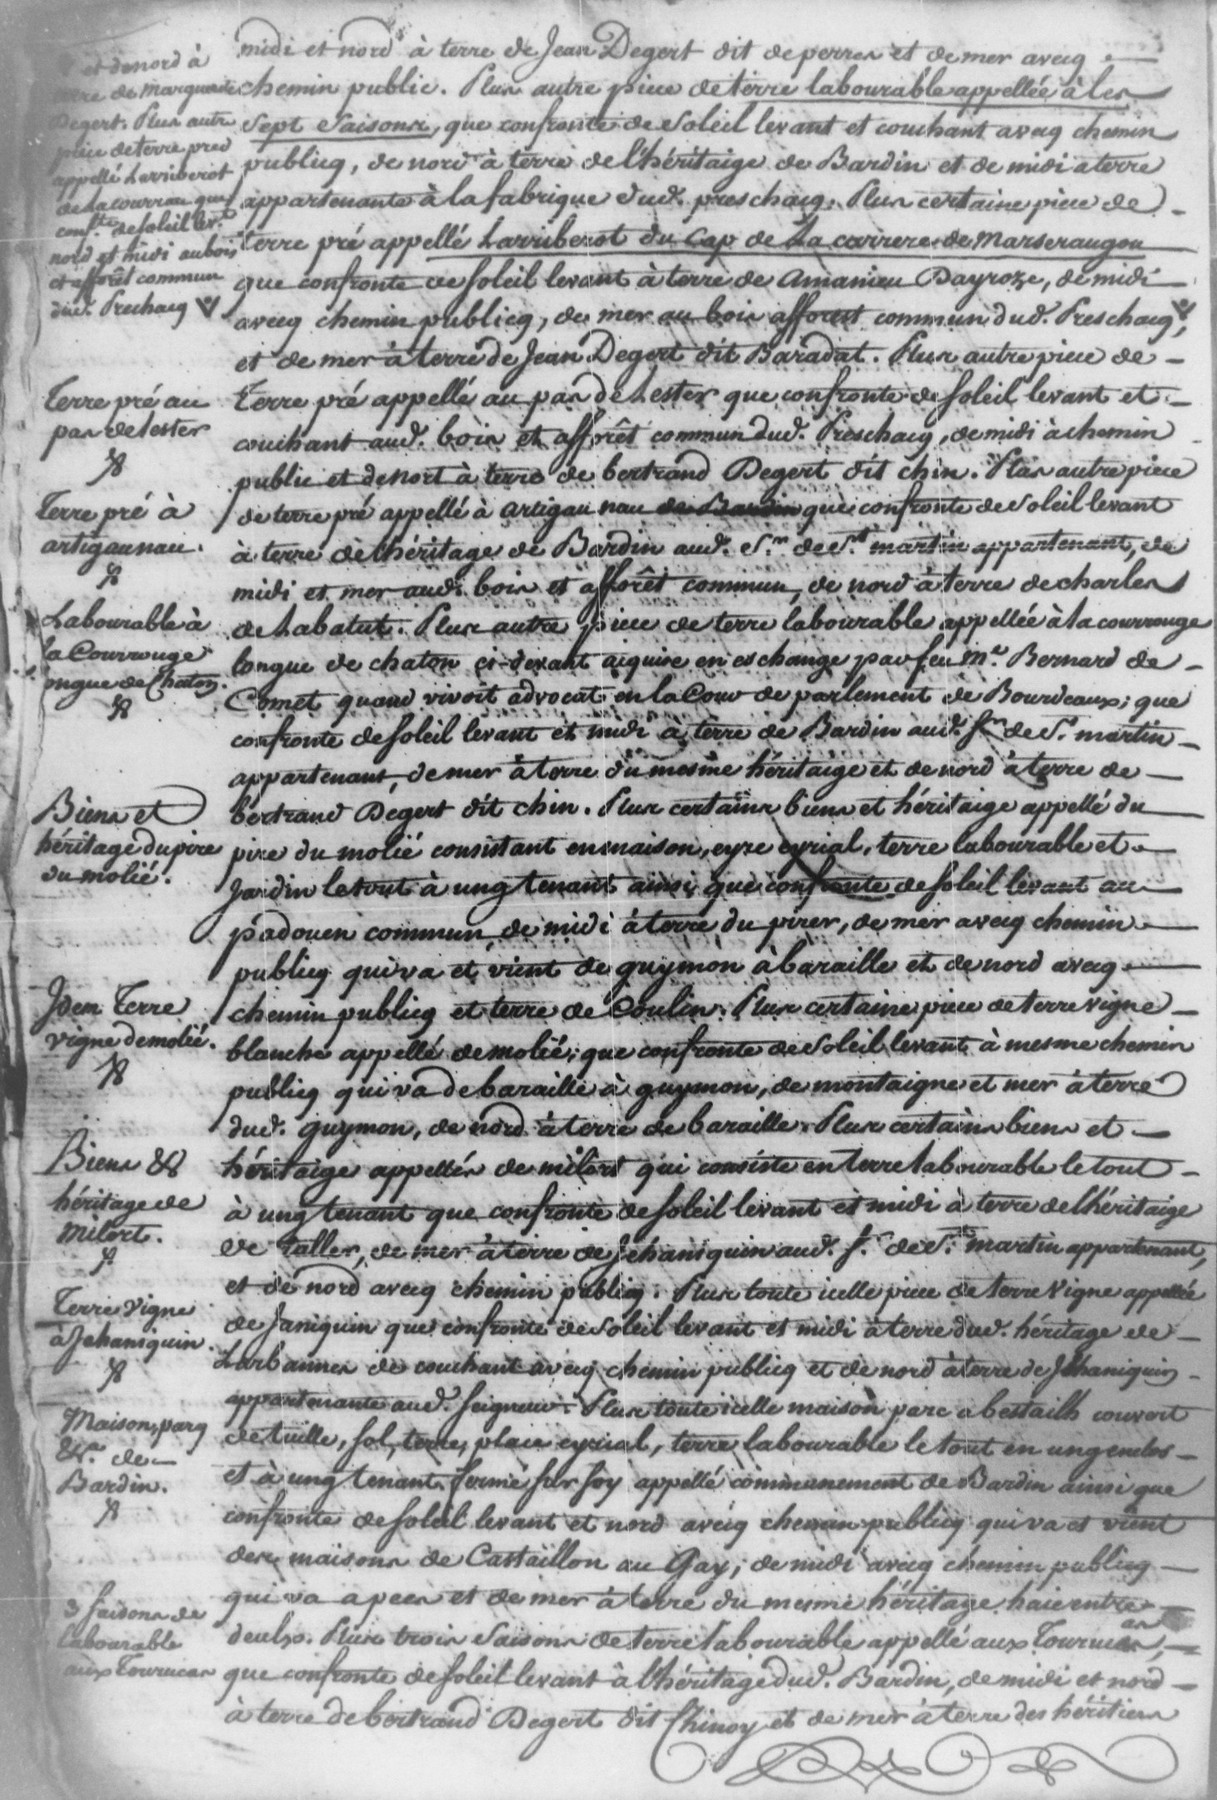 et de nord à
terre de marguerite
Degert. Plus autre
piece de terre pred
appellé Larriberot
de la courrau que
conf.te de soleil lev.t
nord et midi au bois
et afforêt commun
dud. Prechacq
Terre pré au
pas de Lester
Terre pré à
artigaunau.
Labourable à
la Courrouge
longue de Chaton.
Biens et
héritage du pire
du molié.
Idem Terre
vigne de molié.
Biens &
héritage de
Milort.
Terre Vigne
à Jehaniquin.
Maison, parq
&c. de
Bardin.
3 saisons de
labourable
aux Tourucas
midi et nord à terre de Jean Degert dit de perres et de mer avecq
chemin public. Plus autre piece de terre labourable appellée à les
Sept Saisons, que confronte de Soleil levant et couchant avecq chemin
publicq, de nord à terre de l'héritaige de Bardin et de midi a terre
appartenante à la fabrique dud. preschacq. Plus certaine piece de
terre pré appellé Larriberot du Cap de La carrere de Marseraugou
que confronte de soleil levant à terre de Amanieu Dayroze, de midi
avecq chemin publicq, de mer au bois afforest commun dud. Preschacq,
et de mer à terre de Jean Degert dit Baradat. Plus autre piece de
Terre pré appellé au pas de Lester que confronte de soleil levant et
couchant aud. bois et afforêt commun dud. Preschacq, de midi à chemin
public et de nort à terre de bertrand Degert dit chin. Plus autre piece
de terre pré appellé à artigau nau de Bardin que confronte de soleil levant
à terre de l'héritage de Bardin aud. S.r de S.t martin appartenant, de
midi et mer aud. bois et afforêt commun, de nord à terre de charles
de Labatut. Plus autre piece de terre labourable appellée à la courrouge
longue de chaton ci-devant aiquise en eschange par feu M.e Bernard de
Comet quand vivoit advocat en la Cour de parlement de Bourdeaux; que
confronte de soleil levant et midi à terre de Bardin aud. S.r de S.t martin
appartenant, de mer à terre du mesme héritaige et de nord à terre de
bertrand Degert dit chin. Plus certains biens et héritaige appellé du
pire du molié consistant en maison, eyre eyrial, terre labourable et
Jardin le tout à ung tenant ainsi que confronte de soleil levant au
padouen commun de midi à terre du pirer, de mer avecq chemin
publicq qui va et vient de guymon à baraille et de nord avecq
chemin publicq et terre de Coulin. Plus certaine piece de terre vigne
blanche appellé de molié; que confronte de soleil levant à mesme chemin
publicq qui va de baraille à guymon, de montaigne et mer à terre
dud. guymon, de nord à terre de baraille. Plus certains biens et
héritaige appellés de milort qui consiste en terre labourable le tout
à ung tenant que confronte de soleil levant et midi à terre de l'héritaige
de Taller, de mer à terre de Jehaniquin aud. S.r de S.t martin appartenant,
et de nord avecq chemin publicq. Plus toute icelle piece de terre vigne appellée
de Janiquin que confronte de soleil levant et midi à terre dud. héritage de
Larbannes de couchant avecq chemin publicq et de nord à terre de Jehaniquin
appartenante aud. Seigneur. Plus toute icelle maison parc a bestailh couvert
de tuille, sol, terre, place eyrial, terre labourable le tout en ung enclos
et à ung tenant fermé sur soy appellé communement de Bardin ainsi que
confronte de soleil levant et nord avecq chemin publicq qui va et vient
des maisons de Castaillon au Gay, de midi avecq chemin publicq
qui va a pees et de mer à terre du mesme héritage haie entre
deulx. Plus trois saisons de terre labourable appellé aux Tourucas,
que confronte de soleil levant à l'héritage dud. Bardin, de midi et nord
à terre de bertrand Degert dit Chinoy et de mer à terre des héritiers